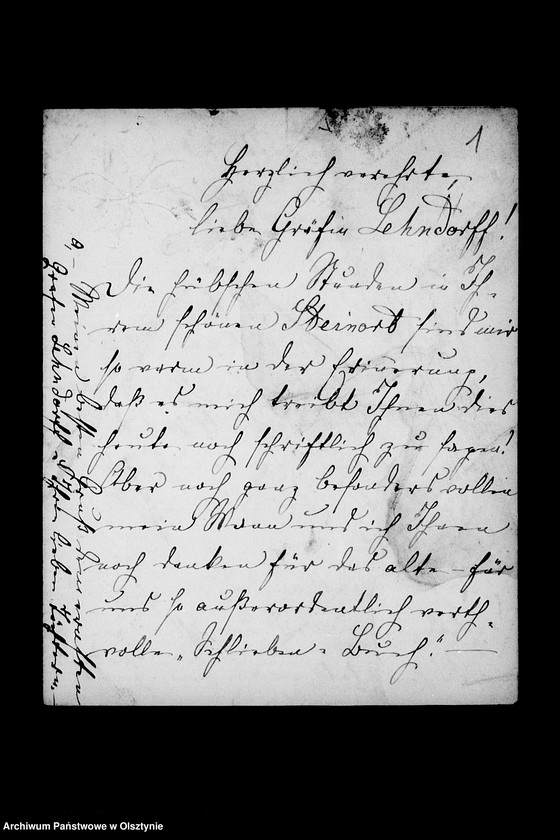 1
Herzlich verehrte,
liebe Gräfin Lehndorff!
Die hübschen Stunden in Ih-
rem schönen Steinort sind mir
so warm in der Erinnerung,
daß es mich treibt Ihnen dies
heute noch schriftlich zu sagen!
Aber noch ganz besonders wollen
mein Mann und ich Ihnen
noch danken für das alte – für
uns so außerordentlich werth-
volle „Schlieben-Buch". —
Meinen besten Gruß dem
Grafen Lehndorff u. Ihren lieben Töchtern. —
Archiwum Państwowe w Olsztynie